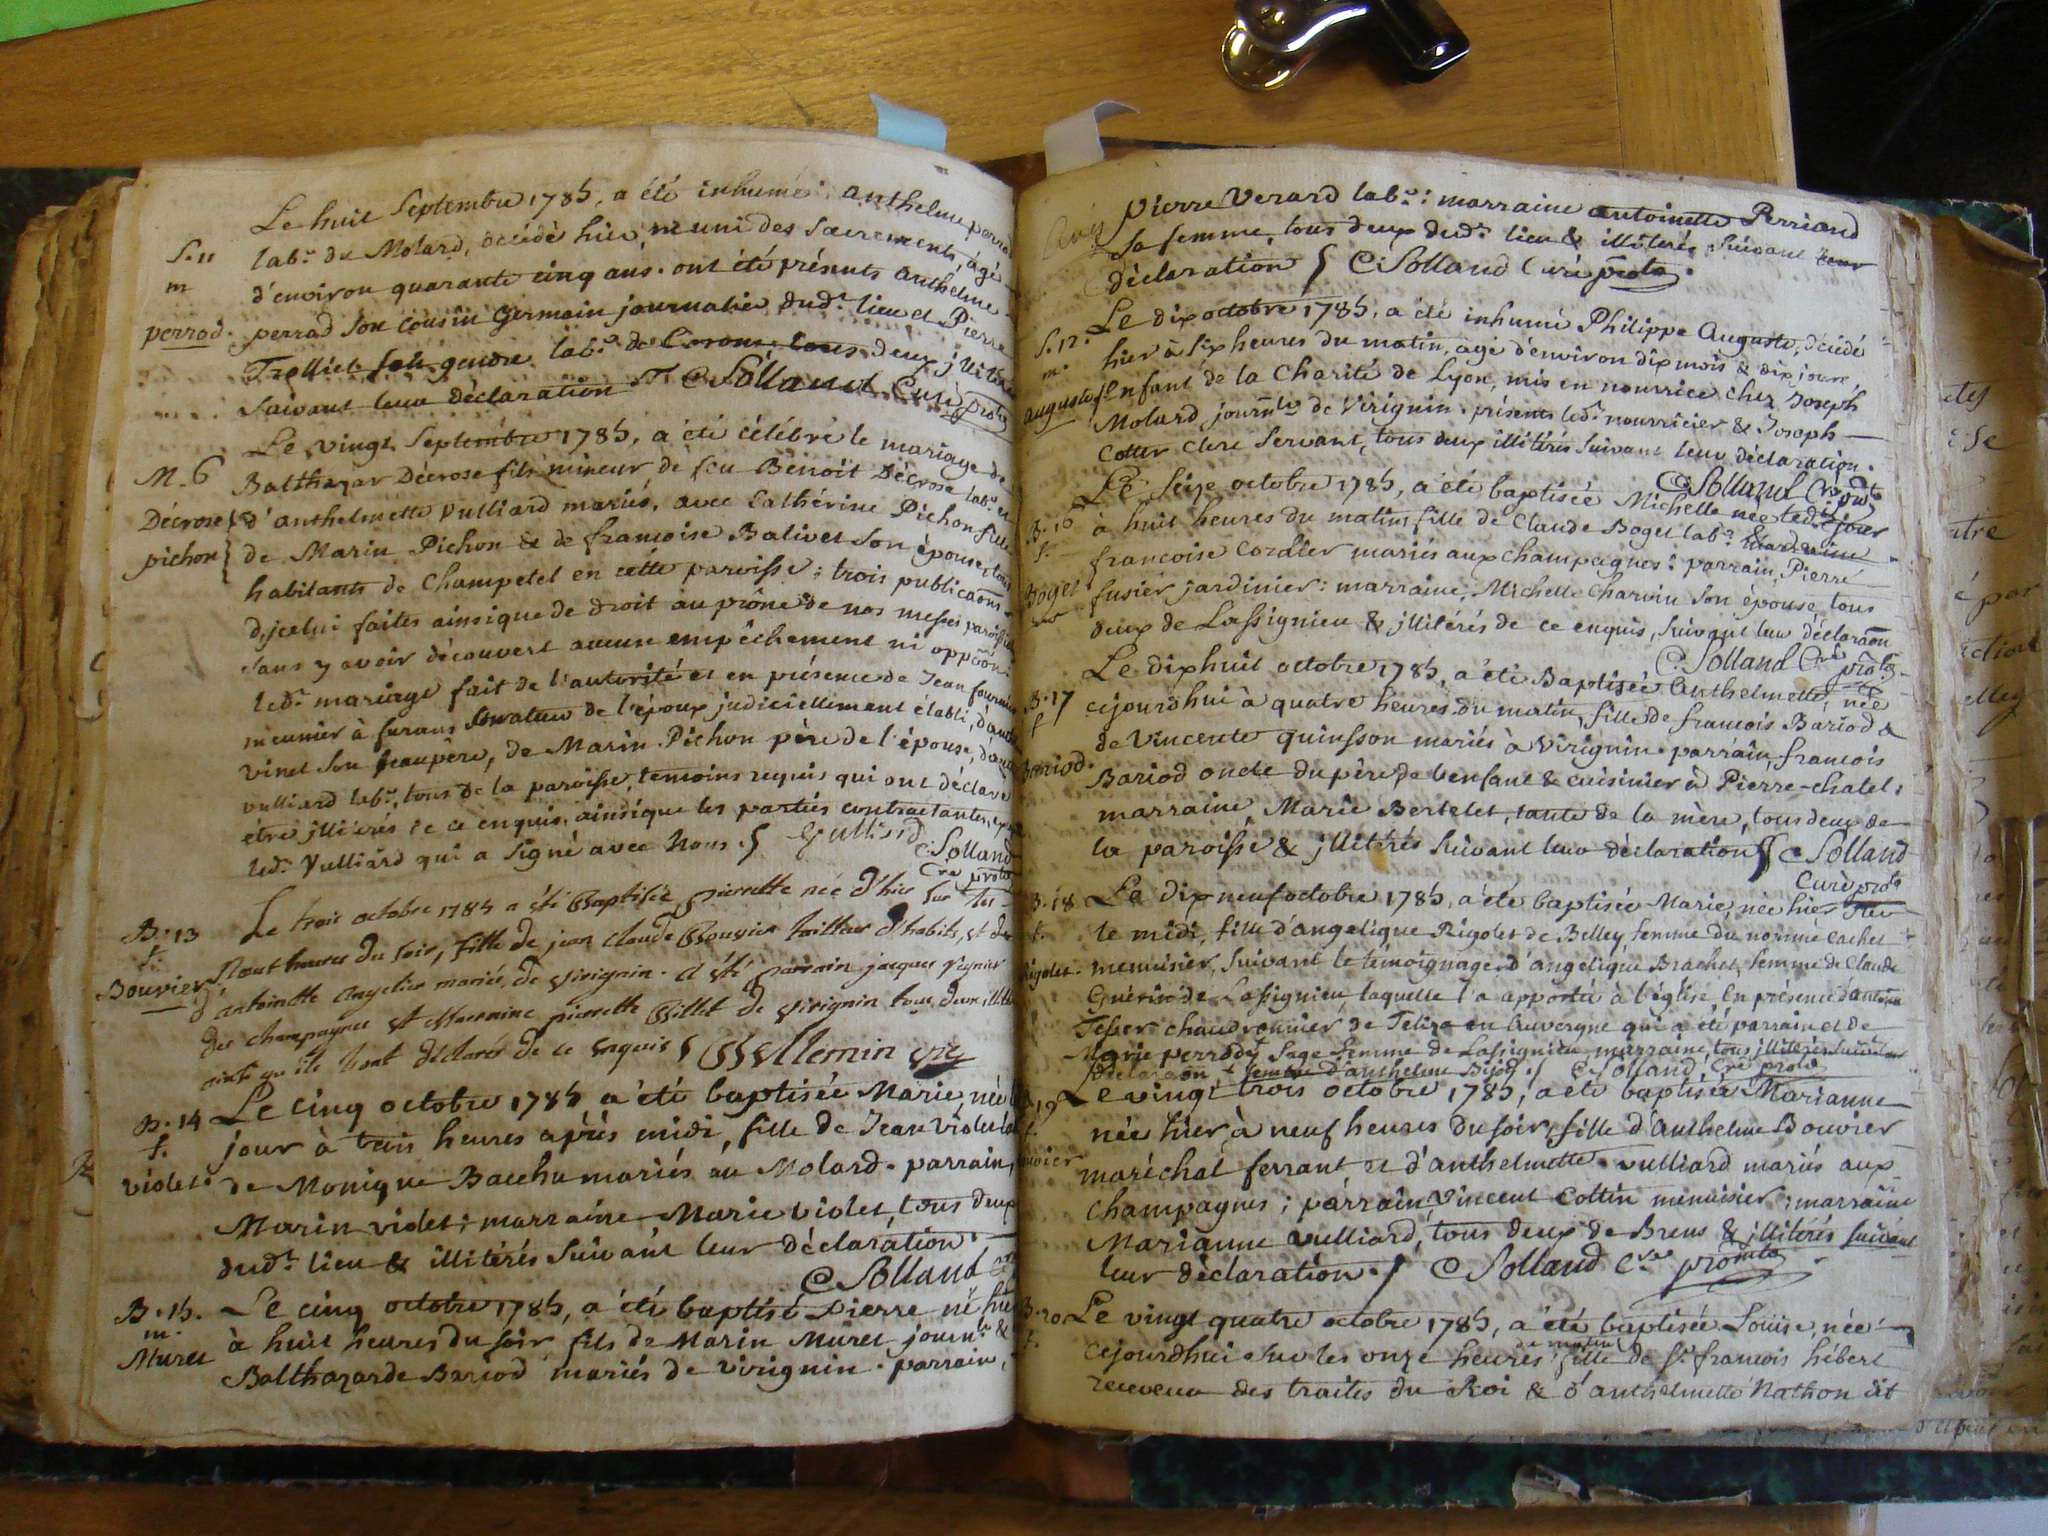 Le huit Septembre 1785, a été inhumé anthelme perrod
S. 11
m
perrod.
lab.r du Molard, décédé hier, muni des Sacrements, agé
d'environ quarante cinq ans. ont été présents anthelme
perrod son cousin Germain journalier dud.t lieu et Pierre
Trolliet son gendre lab.r de tous deux jllitérés
suivant leur déclaration C. Solland Curé proto
Le vingt Septembre 1785, a été célébré le mariage de
M. 6
Décrose
pichon
Balthazar Décrose fils mineur de feu Benoit Décrose lab.r et
d'anthelmette Vulliard mariés, avec Cathérine Pichon fille
de Marin Pichon & de francoise Balivet son épouse, tous
habitants de Champetel en cette paroisse; trois publicaons
d'jcelui faites ainsique de droit au prône de nos messes paroissiales
sans y avoir découvert aucun empêchement ni oppôon.
led.t mariage fait de l'autorité et en présence de Jean
meunier à furans Curateur de l'époux judiciellement établi,
vinet son beaupère, de Marin Pichon père de l'épouse,
vulliard lab.r, tous de la paroisse, temoins requis qui ont déclaré
être jllitérés de ce enquis, ainsique les parties contractantes,
led.t Vulliard qui a signé avec Nous. Vulliard
C. Solland
Cré proto
Le trois octobre 1785 a été Baptisée pierrette née d'hier sur les
B. 13
f.
Bouvier
neuf heures du soir, fille de jean claude Bouvier tailleur d'habits, et de
antoinette angelier mariés, de virignin. a été parrain jacques
des champagnes et Marraine pierrette Billet de virignin tous deux
ainsi qu'ils l'ont déclarés de ce enquis Vuillemin vic
B. 14
f.
violet.
Le cinq octobre 1785 a été baptisée Marie, née
jour à trois heures après midi, fille de Jean Violet
de Monique Bacchu mariés au Molard. parrain,
Marin violet; marraine Marie violet, tous deux
dud.t lieu & illitérés suivant leur déclaration.
C. Solland
B. 15.
m.
Muret
Le cinq octobre 1785, a été baptisé Pierre né hier
à huit heures du soir fils de Marin Muret journ.er &
Balthazarde Bariod mariés de virignin. parrain,
Pierre Verard lab.r: marraine antoinette Perriand
sa femme, tous deux dud.t lieu & illitérés suivant leur
déclaration C. Solland Curé proto.
Le dix octobre 1785, a été inhumé Philippe Auguste, décédé
S. 12.
m.
auguste
hier à six heures du matin, agé d'environ dix mois & dix jours,
Enfant de la Charité de Lyon, mis en nourrice chez Joseph
Molard journ.er de Virignin. présents led.t nourricier & Joseph
Cotter clerc servant, tous deux illitérés suivant leur déclaration.
C. Solland Cré proto
Le Seize octobre 1785, a été baptisée Michelle née led.t jour
B. 16
f.
Boget
à huit heures du matin, fille de Claude Boget lab.r
francoise Cordier mariés aux champagnes: parrain, Pierre
fusier jardinier: marraine, Michelle Charvin son épouse, tous
deux de Lassignieu & jllitérés de ce enquis, suivant leur déclaraôn
C. Solland Cré proto
Le dixhuit octobre 1785, a été Baptisée Anthelmette, née
B. 17
f
Bariod.
cejourdhui à quatre heures du matin, fille de francois Bariod &
de Vincente quinsson mariés à Virignin. parrain, francois
Bariod oncle du père de l'enfant & cuisinier à Pierre-chatel:
marraine, Marie Bertelet, tante de la mère, tous deux de
la paroisse & jllitérés suivant leur déclaration C. Solland
Curé proto
B. 18
f.
Rigolet.
Le dix neuf octobre 1785, a été baptisée Marie, née hier sur
le midi, fille d'angelique Rigolet de Belley femme du nommé cachet
menuisier, suivant le témoignage d'angelique Brachet, femme de Claude
Guérin de Lassignieu laquelle l'a apportée à l'église, en présence
Tesser chaudronnier de en Auvergne qui a été parrain et de
Marie perrody Sage femme de Lassignieu marraine, tous jllitérés suivant
déclaraôn C. Solland Cré proto
B. 19
f.
Bouvier
Le vingt trois octobre 1785, a été baptisée Marianne
née hier à neuf heures du soir, fille d'Anthelme Bouvier
maréchal ferrant et d'anthelmette vulliard mariés aux
champagnes; parrain, Vincent Cottin menuisier; marraine
Marianne Vulliard, tous deux de Brens & jllitérés suivant
leur déclaration. C. Solland Curé proto
B. 20
f.
Le vingt quatre octobre 1785, a été baptisée Louise, née
du matin
cejourdhui sur les onze heures fille de s.r francois hébert
receveur des traites du Roi & d'anthelmette Nathon dit